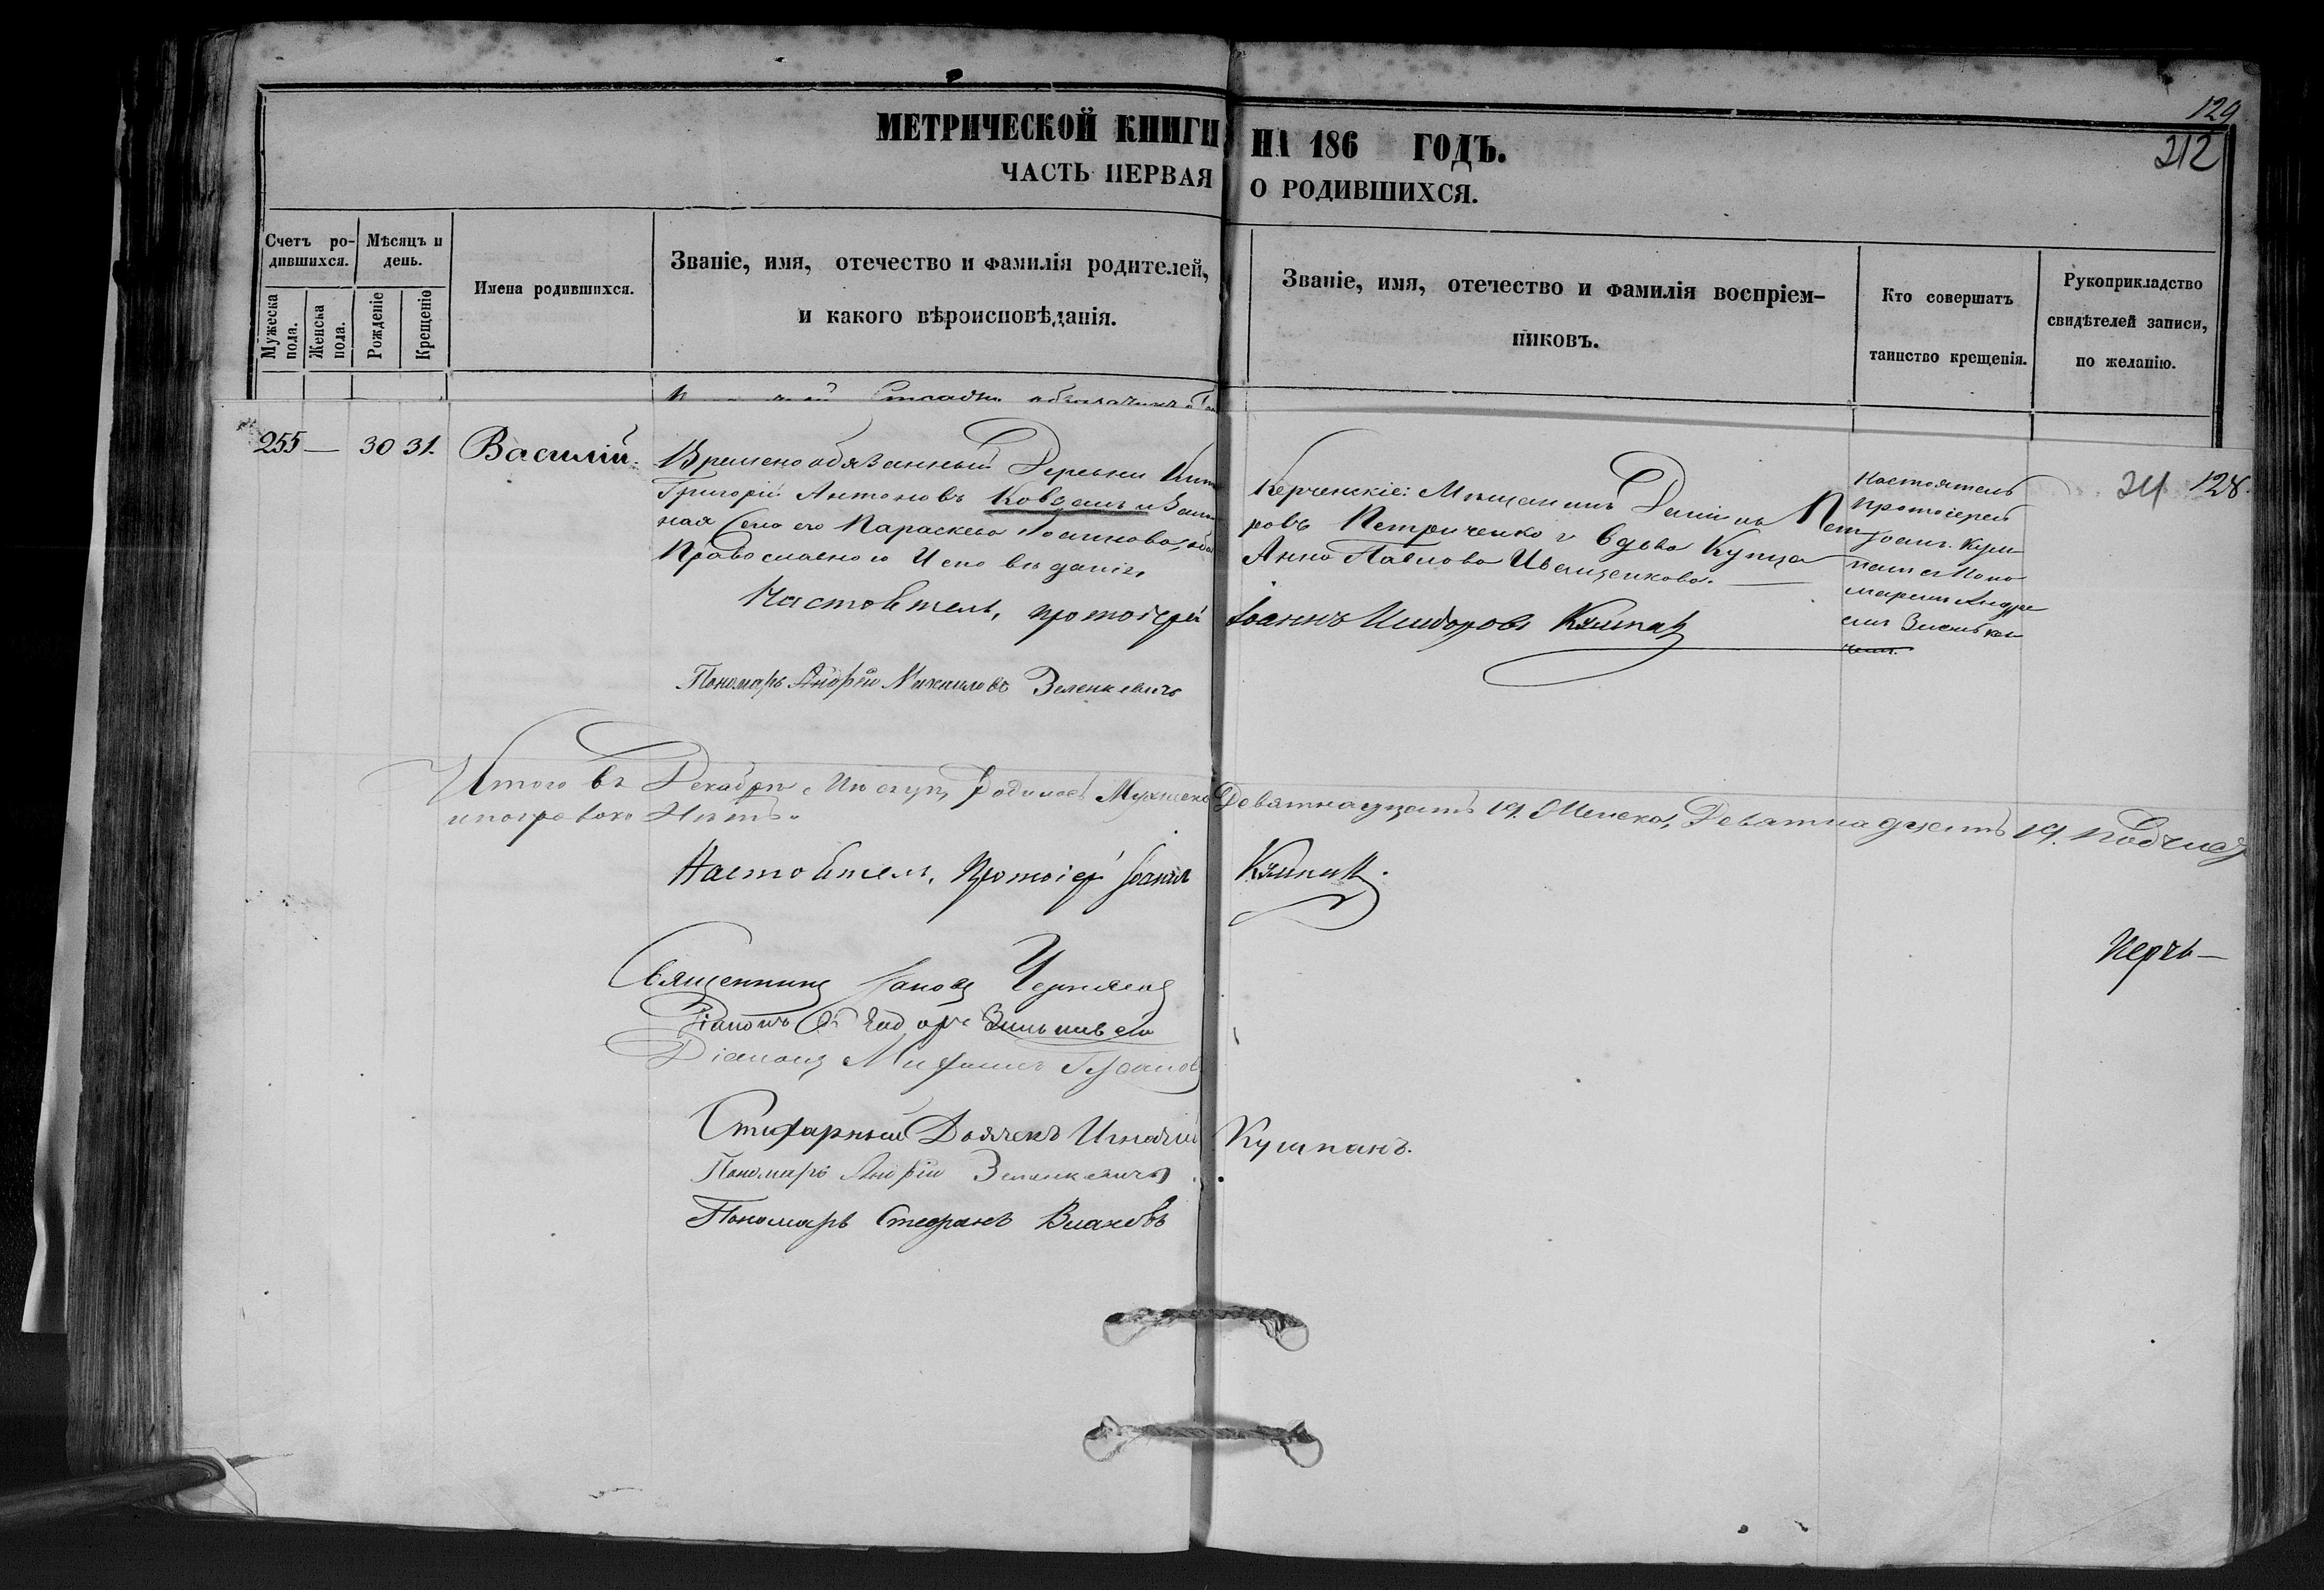 129
212
МЕТРИЧЕСКОЙ КНИГИ НА 186 ГОДЪ.
ЧАСТЬ ПЕРВАЯ О РОДИВШИХСЯ.
Счетъ ро-
дившихся.
Мужеска пола.
Женска пола.
Мѣсяцъ и
день.
Рожденіе
Крещеніе
Имена родившихся.
Званіе, имя, отечество и фамилія родителей,
и какого вѣроисповѣданія.
Званіе, имя, отечество и фамилія воспріем-
никовъ.
Кто совершатъ
таинство крещенія.
Рукоприкладство
свидѣтелей записи,
по желанію.
255 — 30 31. Василій.
Временообязанный Деревни
Григорій Антоновъ Ковзанъ и
ная Жена его Параскева Іоаннова,
Православнаго Исповѣданія.
Керченскіе: Мѣщанинъ Даніилъ Пет
ровъ Петриченко и Вдова Купца
Анна Павлова Иващенкова.
Настоятель
Протоіерей
Іоан. Куш
панъ съ Поно
маремъ Андре
емъ Зеленке
24 128.
Настоятель, протоіерей Іоаннъ Исидоровъ Кушпан
Пономарь Андрей Михайловъ Зеленкевичъ
Итого въ Декабрѣ Мѣсяцѣ Родилось Мужеска Девятнадцать 19. Женска, Девятнадцать 19.
Нѣтъ.
Настоятель, Протоіер Іоаннъ Кушпан.
Керчь —
Священникъ Іаковъ Чернявск
Діаконъ Ѳеодоръ
Діаконъ
Стихарный Дьячекъ Игнатій Кушпанъ.
Пономарь Андрей Зеленкевичъ.
Пономарь Стефанъ Влаховъ